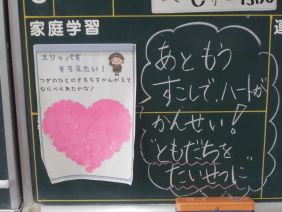 家庭学習
スリッパを
そろえたい!
つぎのひとのきもちをかんがえて
ならべられたかな?
あともう
すこしで、ハートが
かんせい!
"ともだちを
たいせつに"